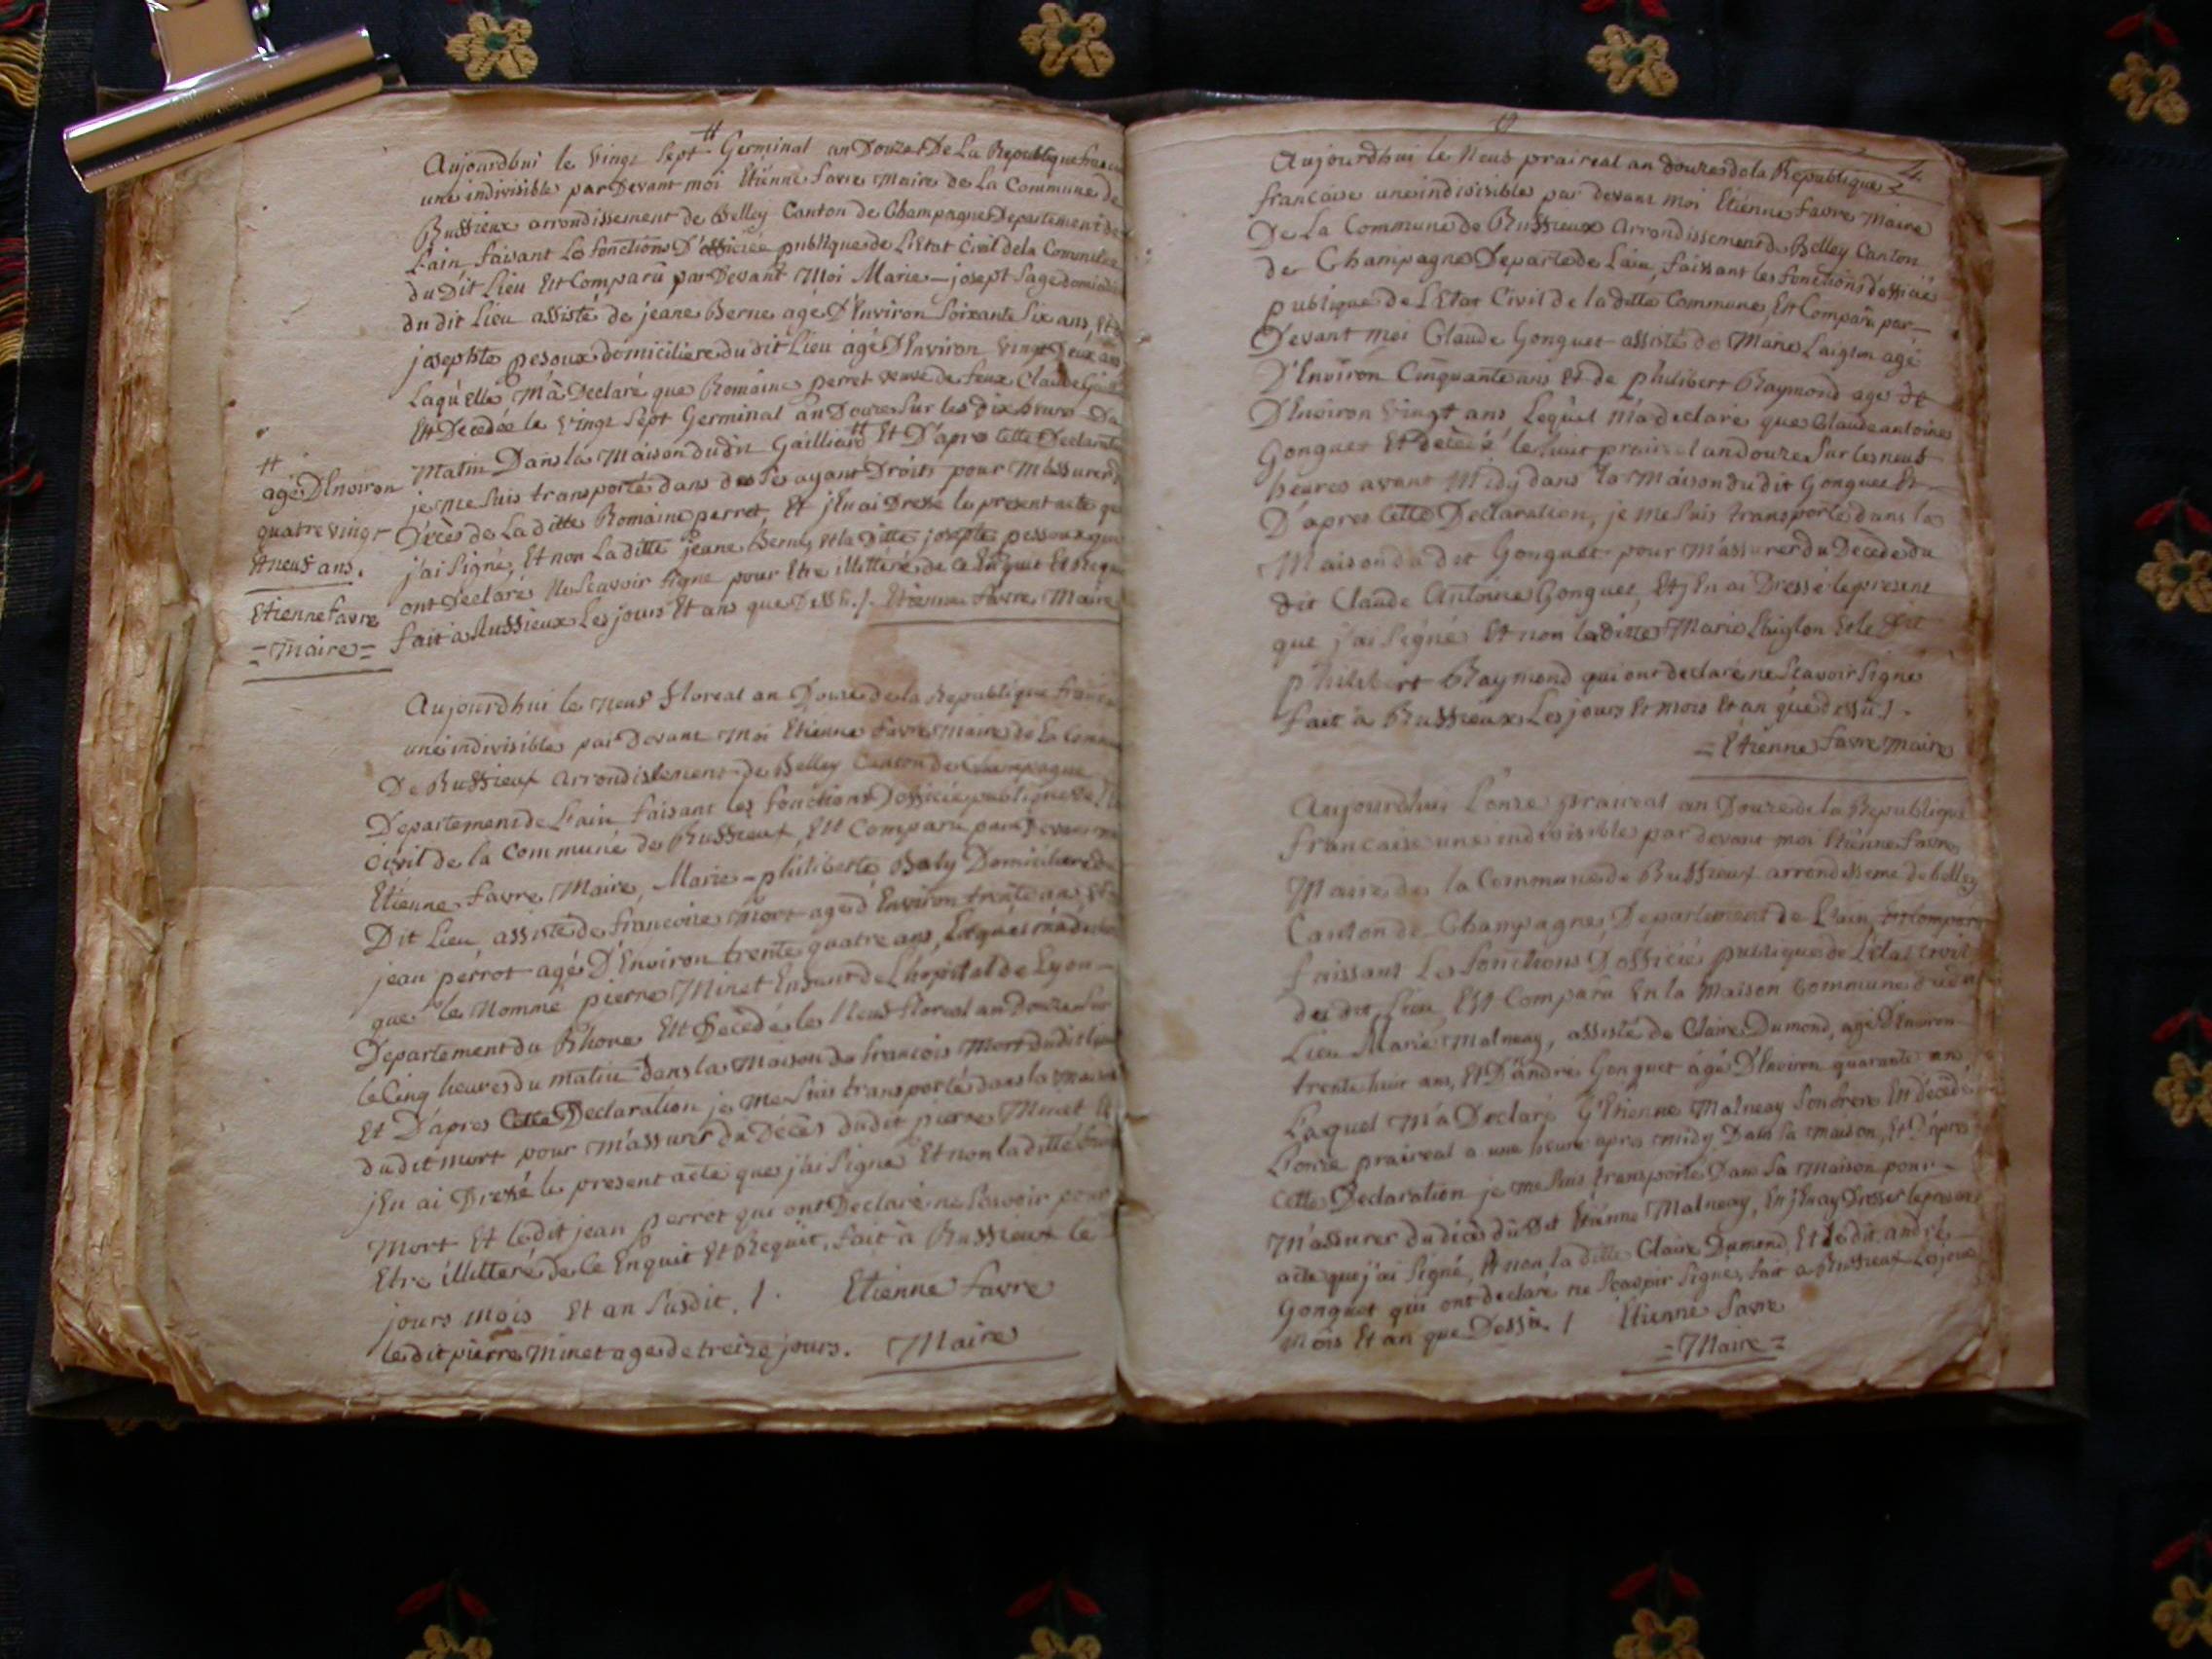 #
Aujourdhui le vingt sept Germinal an Douze De La Republique
une indivisible par Devant moi Etienne favre Maire de La Commune de
Russieux arrondissement de Belley Canton de Champagne Departement de
L'ain faisant les fonctions D'officiée publique de L'Etat Civil de la Commune
du Dit Lieu Est Comparû par Devant Moi Marie-josept Sage
du dit Lieu assisté de jeane Berne agé D'Environ Soixante Six ans, Et
josephte pesoux domicilière du dit Lieu agé D'Environ vingt Deux ans
Laqu'elle M'à Declaré que Romaine perret veuve de feux Claude
Est Decedée le vingt Sept Germinal an Douze Sur les dix heures Du
Matin Dans la Maison du dit Gailliard # Et D'apres Cette Declaration
je me Suis transporté dans des Ses ayant Droits pour M'assurer
Décès de La ditte Romaine perret, Et j'En ai Dressé le present acte que
j'ai Signé, Et non La ditte jeane Berne, et la Ditte josephte pessoux qui
ont Declaré Ne Scavoir Signe pour Etre illitéré de Ce Enquit Et Requi
fait à Russieux Les jours Et ans que Dessu ./. Etienne Favre Maire
#
agé D'Environ
quatre vingt
Et neuf ans.
Etienne favre
= Maire =
Aujourdhui le Neuf floreal an Douze de la Republique
une indivisible par Devant Moi Etienne favre Maire de La
De Russieux Arrondissement de Belley Canton de Champagne
Departement de L'ain faisant les fonctions D'officiée publique de
Civil de la Commune de Russieux, Est Comparu par Devant
Etienne favre Maire, Marie-philiberte Baly Domicilière du
Dit Lieu assisté de francoise Mort agé d'Environ trente ans, et
jean perrot agé D'Environ trente quatre ans, Lesqués m'a
que le Nommé pierre Minet Enfent de L'hopital de Lyon-
Departement du Rhone Est Décèdé le Neuf floreal an Douze Sur
le Cinq heures du matin dans la Maison de francois Mort du dit lieu
Et D'apres Cette Declaration je me Suis transporté dans la maison
du dit mort pour m'assurer du Décès du dit pierre Minet Et
j'En ai Dressé le present acte que j'ai Signé Et non la ditte
Mort Et le dit jean perrot qui ont Declaré ne Scavoir pour
Etre illittéré de Ce Enquit Et Requit, fait à Russieux le
jours Mois Et an Susdit. /. Etienne favre
le dit pierre Minet age de treize jours. Maire
4
Aujourdhui le Neuf prairéal an douze de la Republique
francaise une indivisible par devant moi Etienne favre Maire
De La Commune de Russieux Arrondissement de Belley Canton
de Champagne Departe de L'ain, faissant les fonctions d'officié
publique de L'Etat Civil de la ditte Commune, Est Comparû par-
Devant moi Claude Gonguet assisté de Marie Laiglon agé
D'Environ Cinquante ans Et de philibert Raymond agé de
D'Environ vingt ans, Lequel M'a declaré que Claude antoine
Gonguet Est décédé le huit prairéal an douze Sur les neuf
heures avant Midy dans la Maison du dit Gonguet Et-
D'apres Cette Declaration, je me Suis transporté dans la
Maison du dit Gonguet pour m'assurer du Decede du
dit Claude Antoine Gonguet, Et j'En ai Dressé le present
que j'ai Signé Et non la ditte Marie Laiglon Et le dit
philibert Raymond qui ont declaré ne Scavoir Signé
fait à Russieux Les jours Et mois Et an que dessû ./.
= Etienne favre maire
Aujourdhui L'onze prairéal an Douze de la Republique
francaise une indivisible par devant moi Etienne favre
Maire de la Commune de Russieux arrondisseme de belley
Canton de Champagne, Departement de L'ain, Est Compar
faissant Les fonctions D'officié publique de L'état Civil
du dit Lieu Est Comparu En la Maison Commune
Lieu Marie Malneay, assisté de Claire Dumond, agé D'Environ
trente huit ans, Et D'andré Gonguet âgé D'Environ quarante ans
Laquel M'a Declaré Q'Etienne Malneay Son frere Est décédé
L'onze prairéal a une heure apres midy Dans Sa maison, Et D'apres
Cette Declaration je me Suis transporté Dans Sa Maison pour-
M'assurer du décès du Dit Etienne Malneay, En j'Enay Dresser le present
acte que j'ai Signé, Et non la ditte Claire Dumond, Et le dit andré
Gonguet qui ont declaré ne Scavoir Signés, fait a Russieux Les jour
Mois Et an que Dessû. / Etienne favre
= Maire =